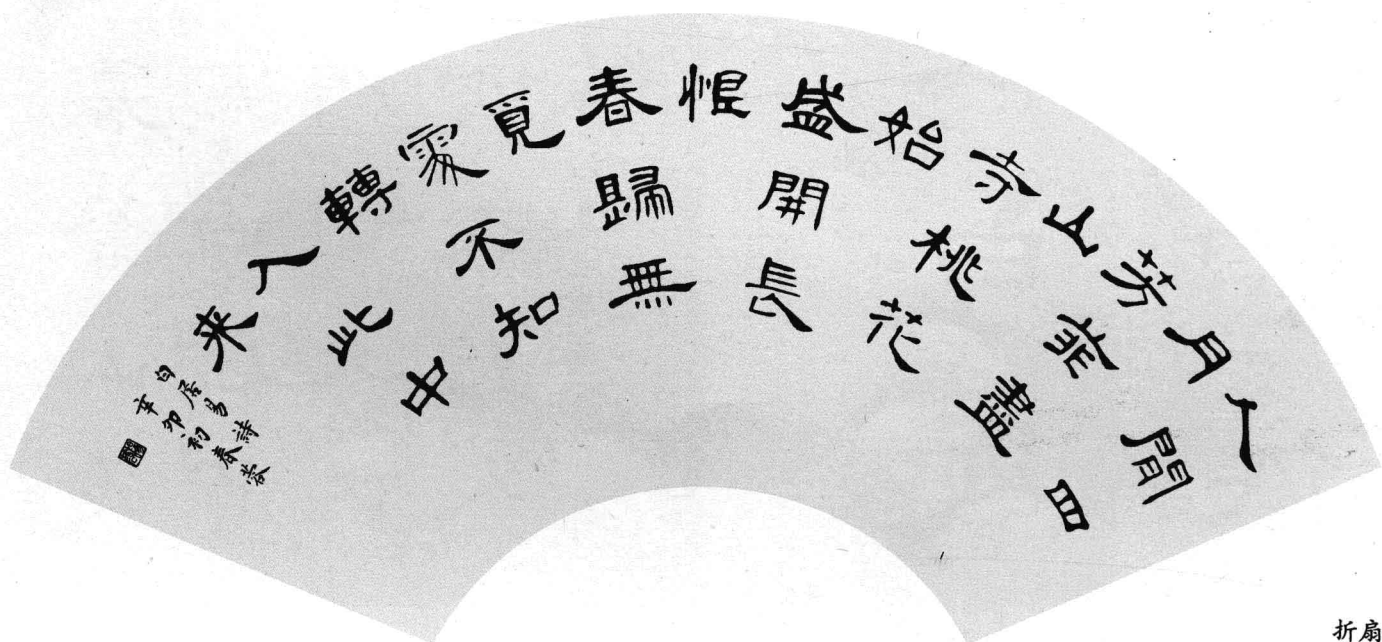 人間四
月
芳菲盡
山
寺桃花
始
盛開長
恨
春歸無
覓
處不知
轉
入此中
来
白居易詩
辛卯初春
折扇